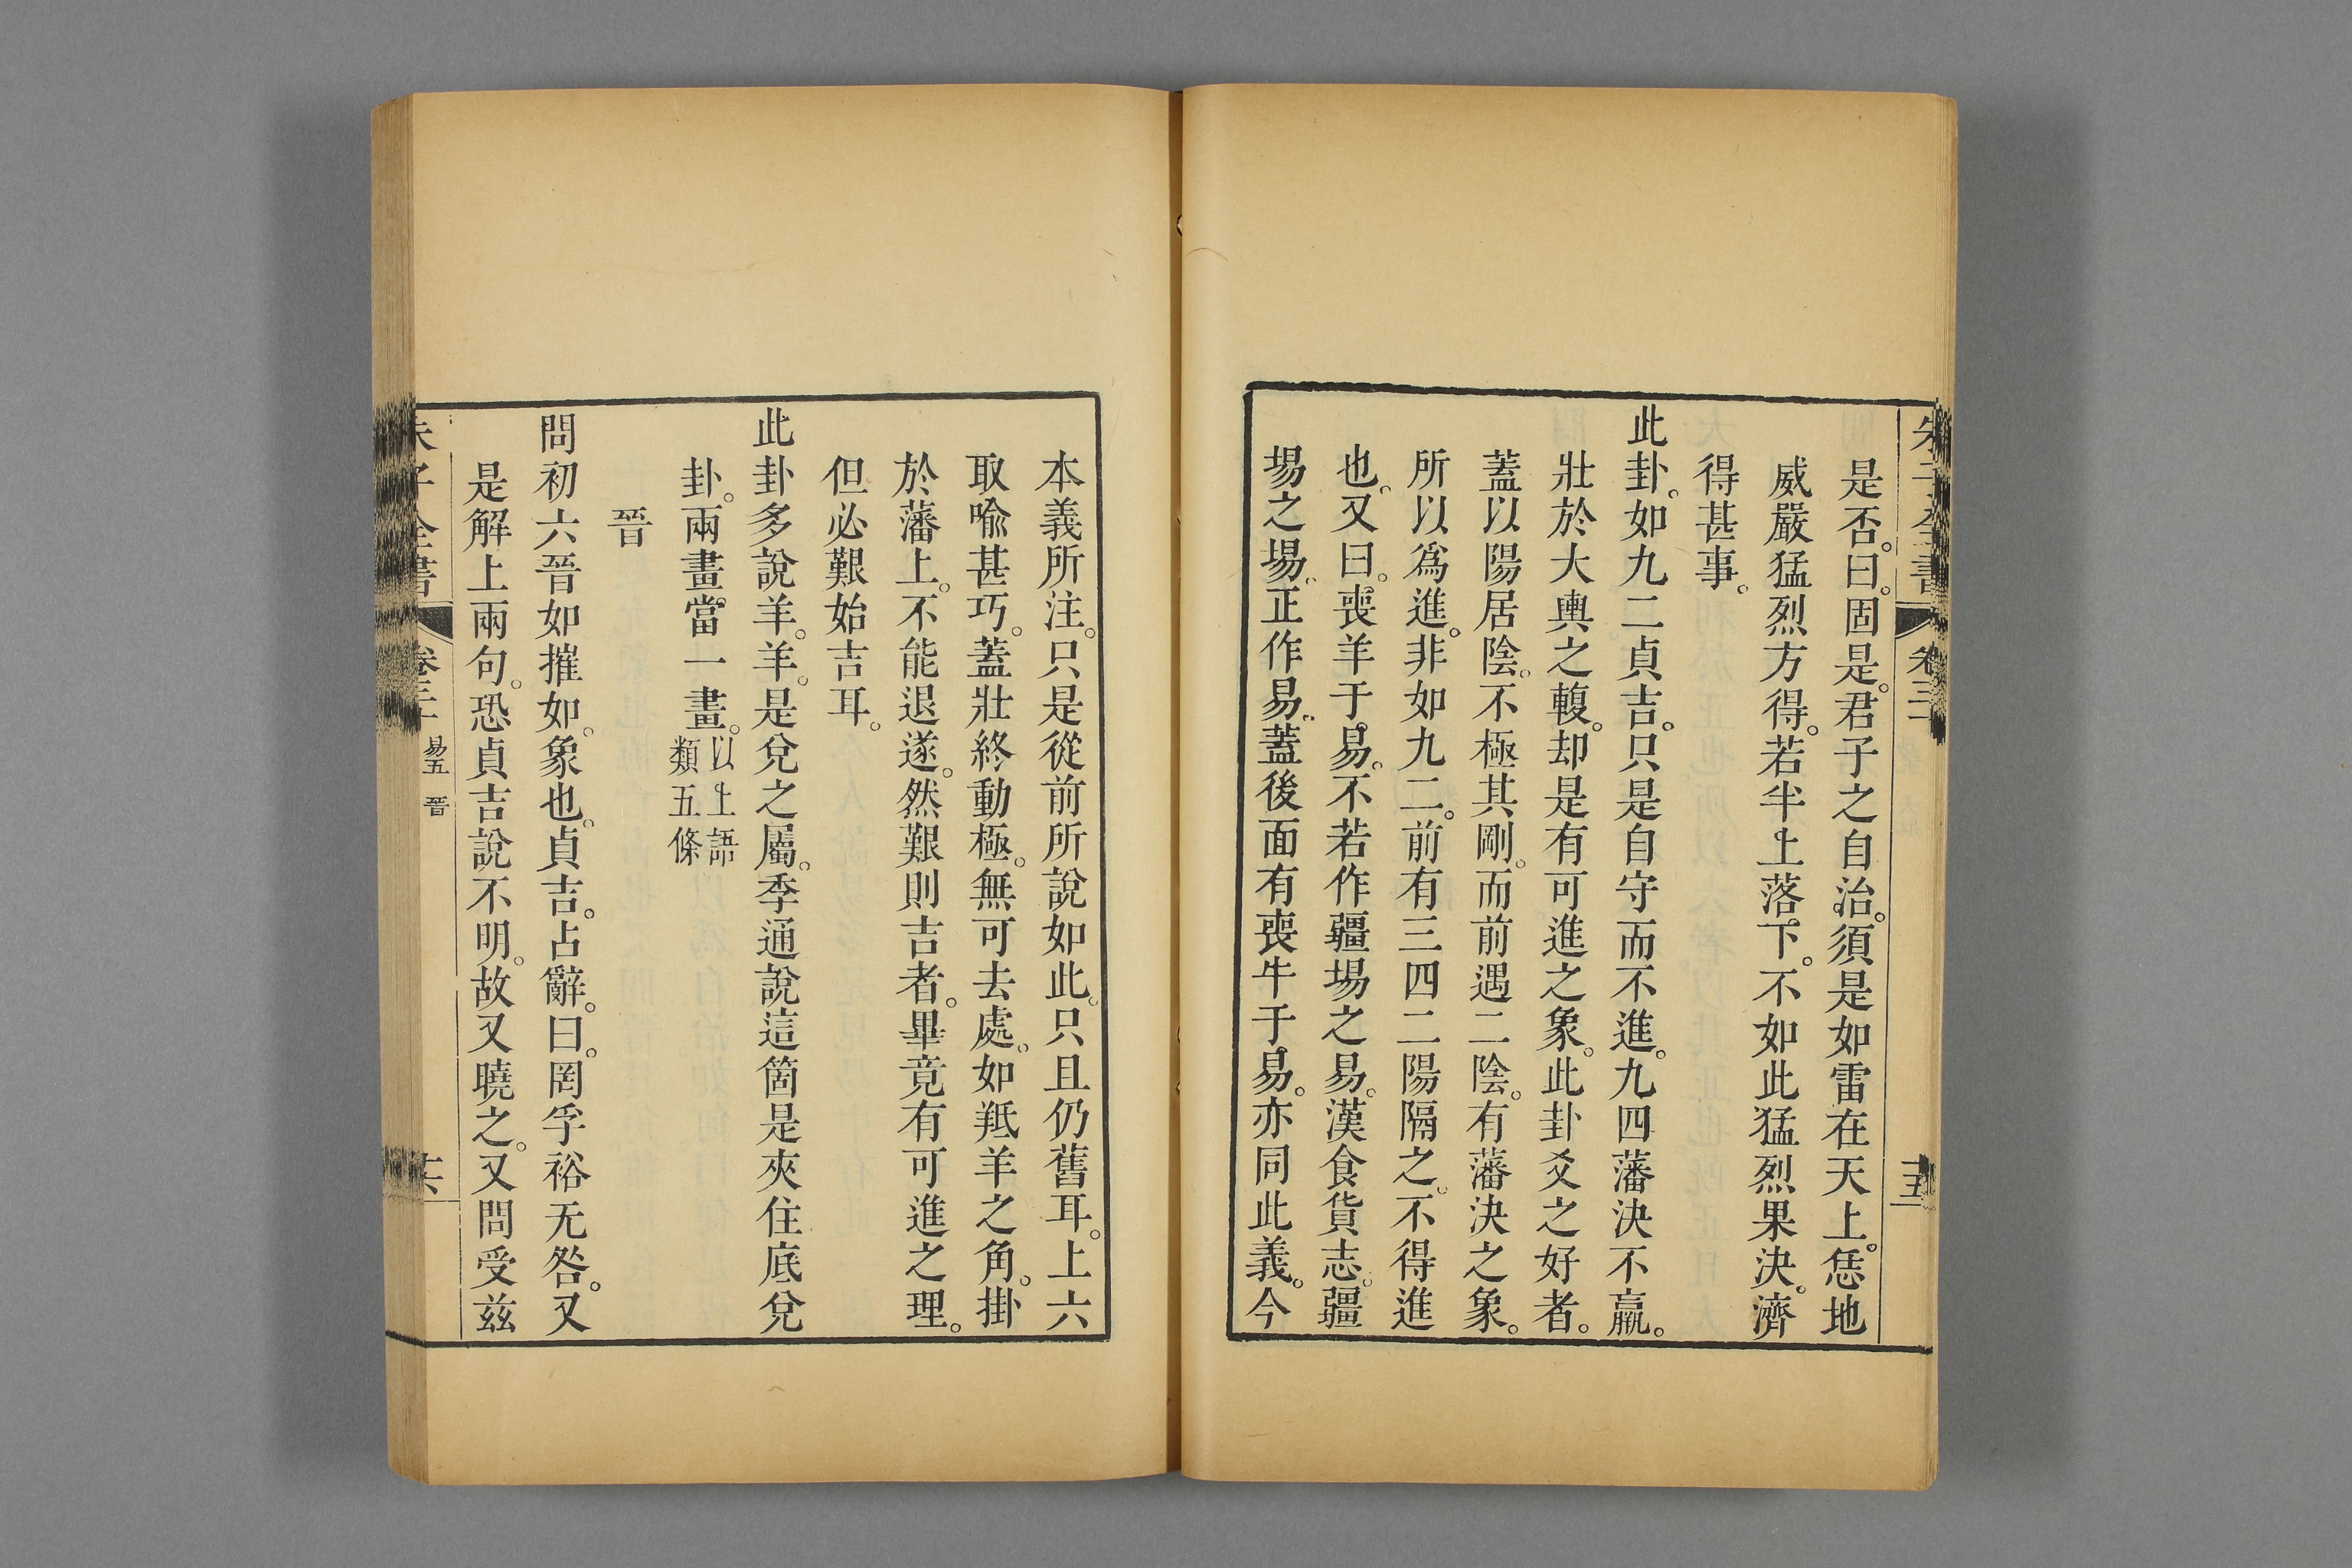 是否。曰。固是。君子之自治。須是如雷在天上。恁地
威嚴猛烈方得。若半上落下。不如此猛烈果決。濟
得甚事。
此卦。如九二貞吉。只是自守而不進。九四藩決不羸。
壯於大輿之輹。却是有可進之象。此卦爻之好者。
蓋以陽居陰。不極其剛。而前遇二陰。有藩決之象。
所以爲進。非如九二。前有三四二陽隔之。不得進
也。又曰。喪羊于易。不若作疆埸之易。漢食貨志。疆
埸之埸。正作易。蓋後面有喪牛于易。亦同此義。今
本義所注。只是從前所說如此。只且仍舊耳。上六
取喩甚巧。蓋壯終動極。無可去處。如羝羊之角。掛
於藩上。不能退遂。然艱則吉者。畢竟有可進之理。
但必艱始吉耳。
此卦多說羊。羊。是兌之屬。季通說這箇是夾住底兌
卦。兩畫。當一畫。以上語
類五條
晉
問初六晉如摧如。象也。貞吉。占辭。曰。罔孚裕无咎。又
是解上兩句。恐貞吉說不明。故又曉之。又問受茲
易五 晉